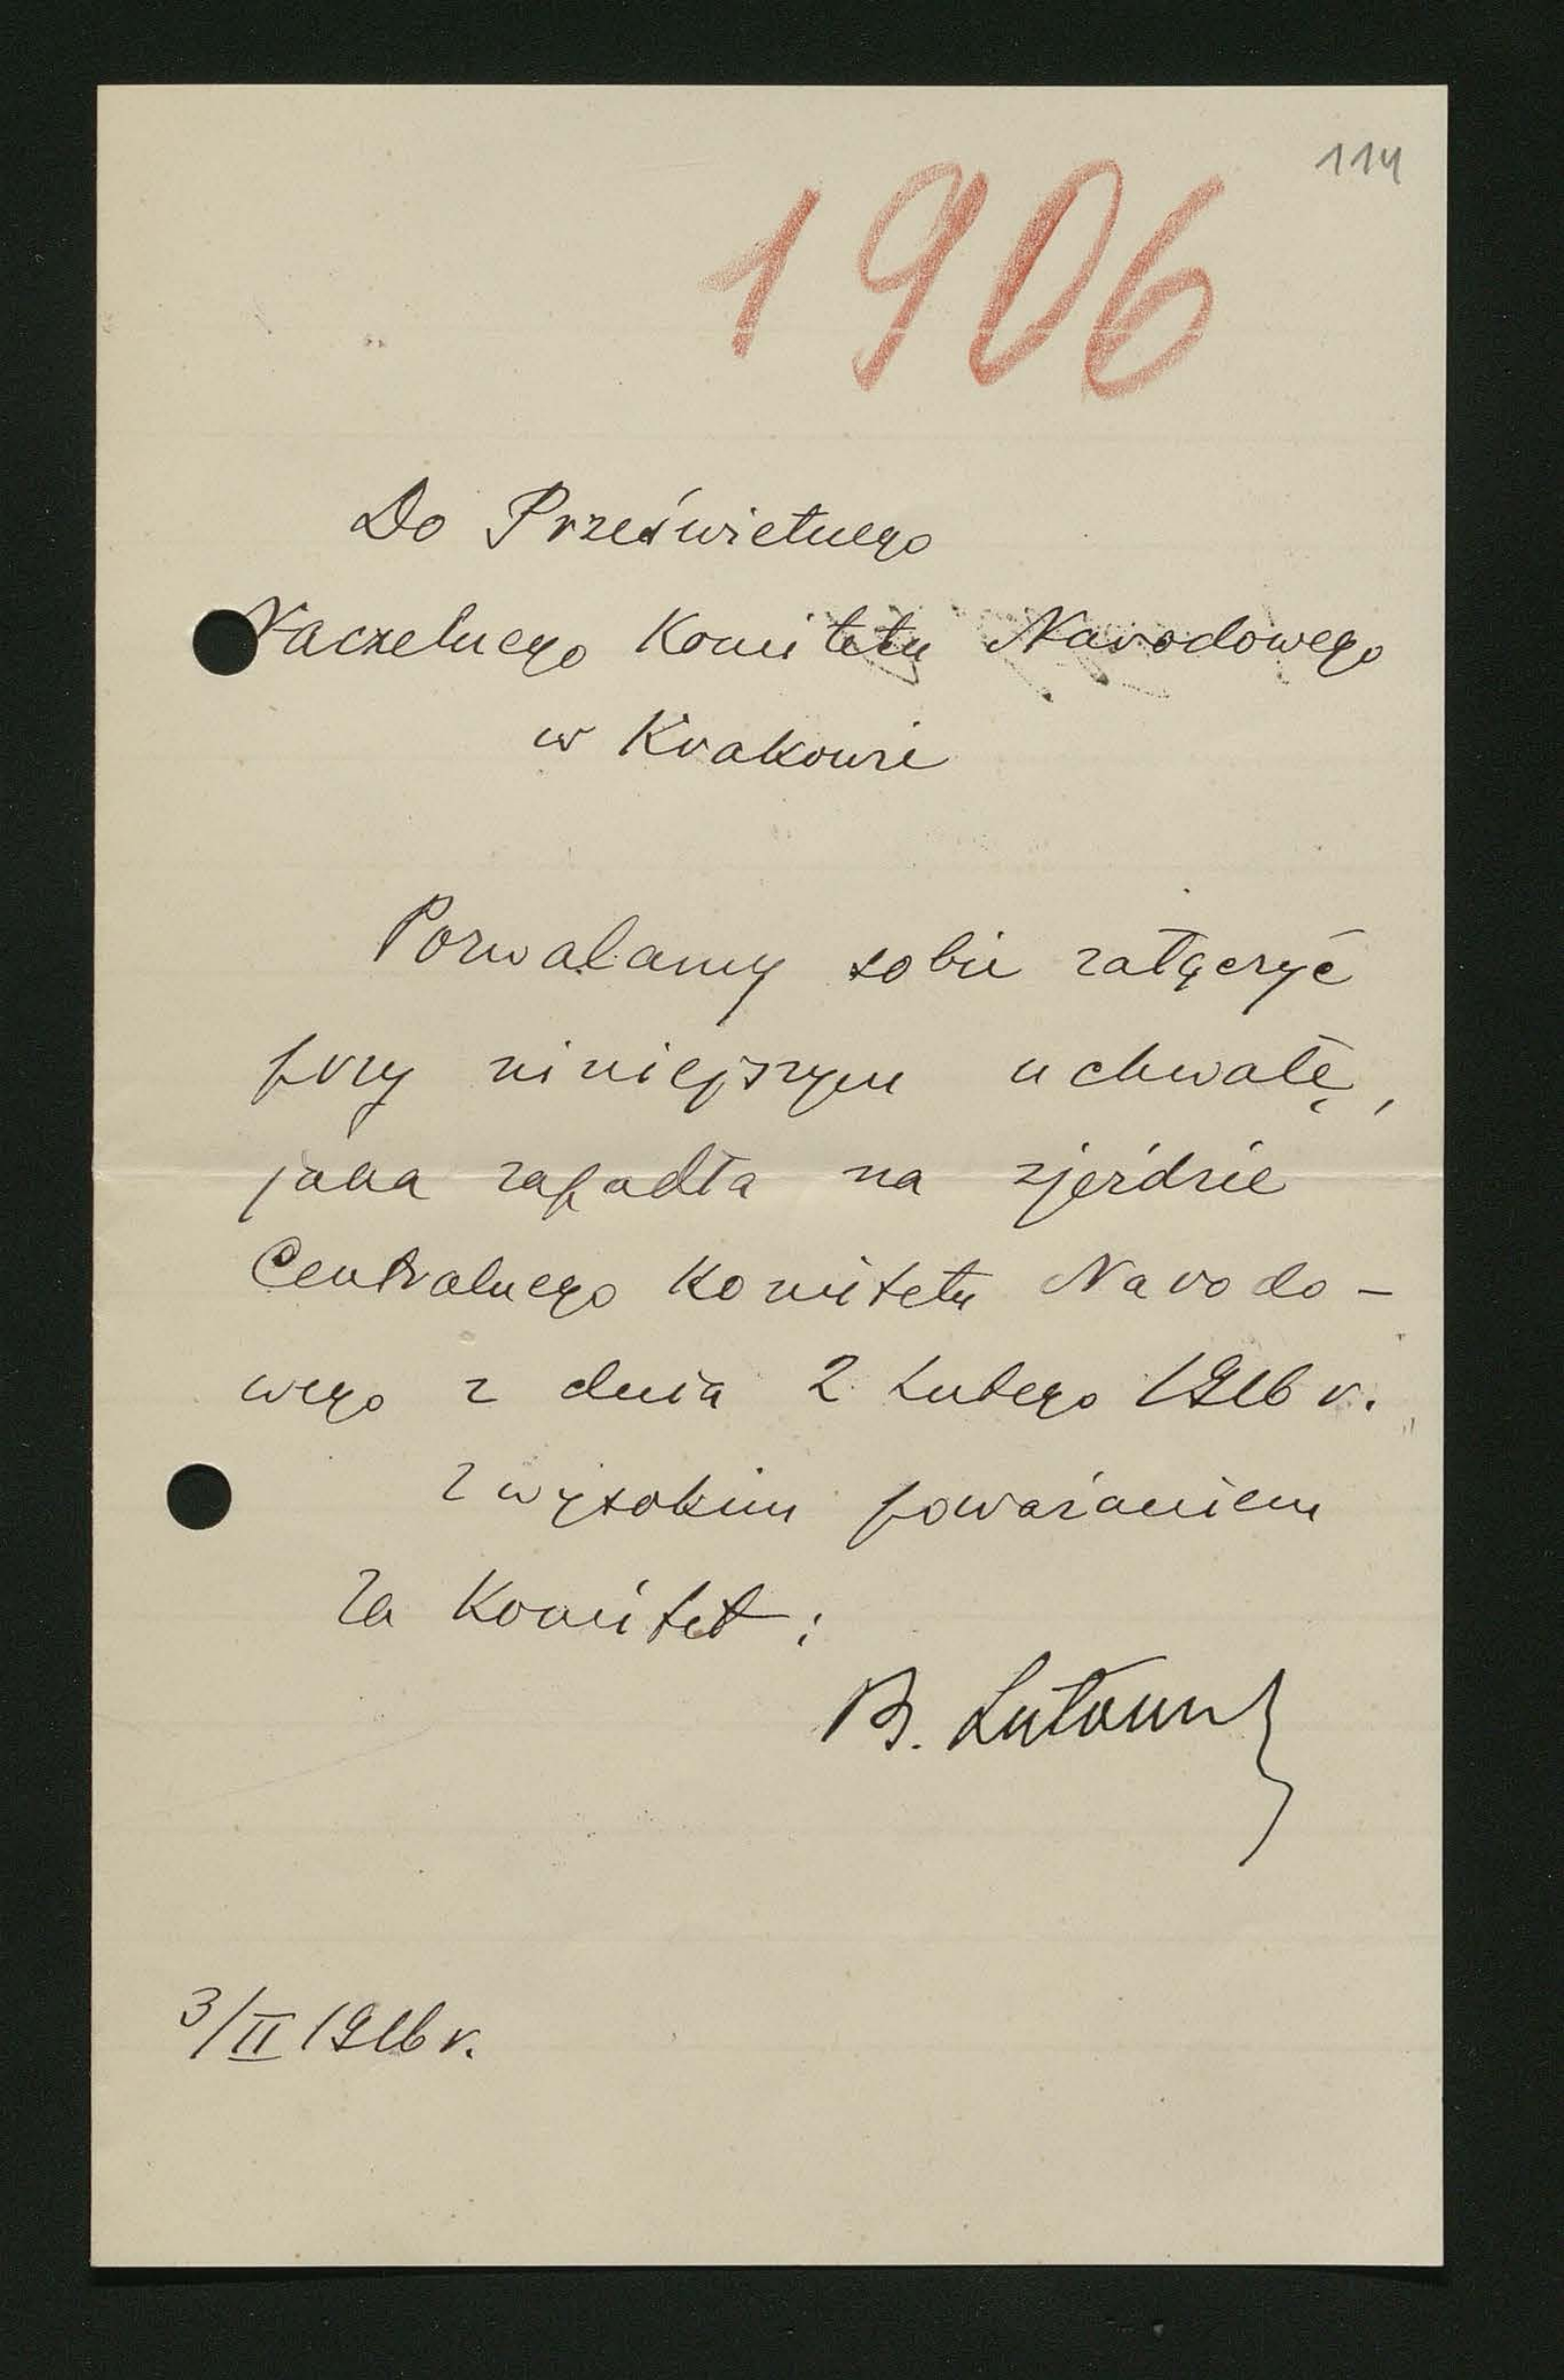 114
1906
Do Prześwietnego
Naczelnego Komitetu Narodowego
w Krakowie
Pozwalamy sobie załączyć
przy niniejszym uchwałę,
jaka zapadła na zjeździe
Centralnego Komitetu Narodo-
wego z dnia 2 Lutego 1916 r.
Z wysokim poważaniem
Za Komitet:
B.
3/II 1916 r.